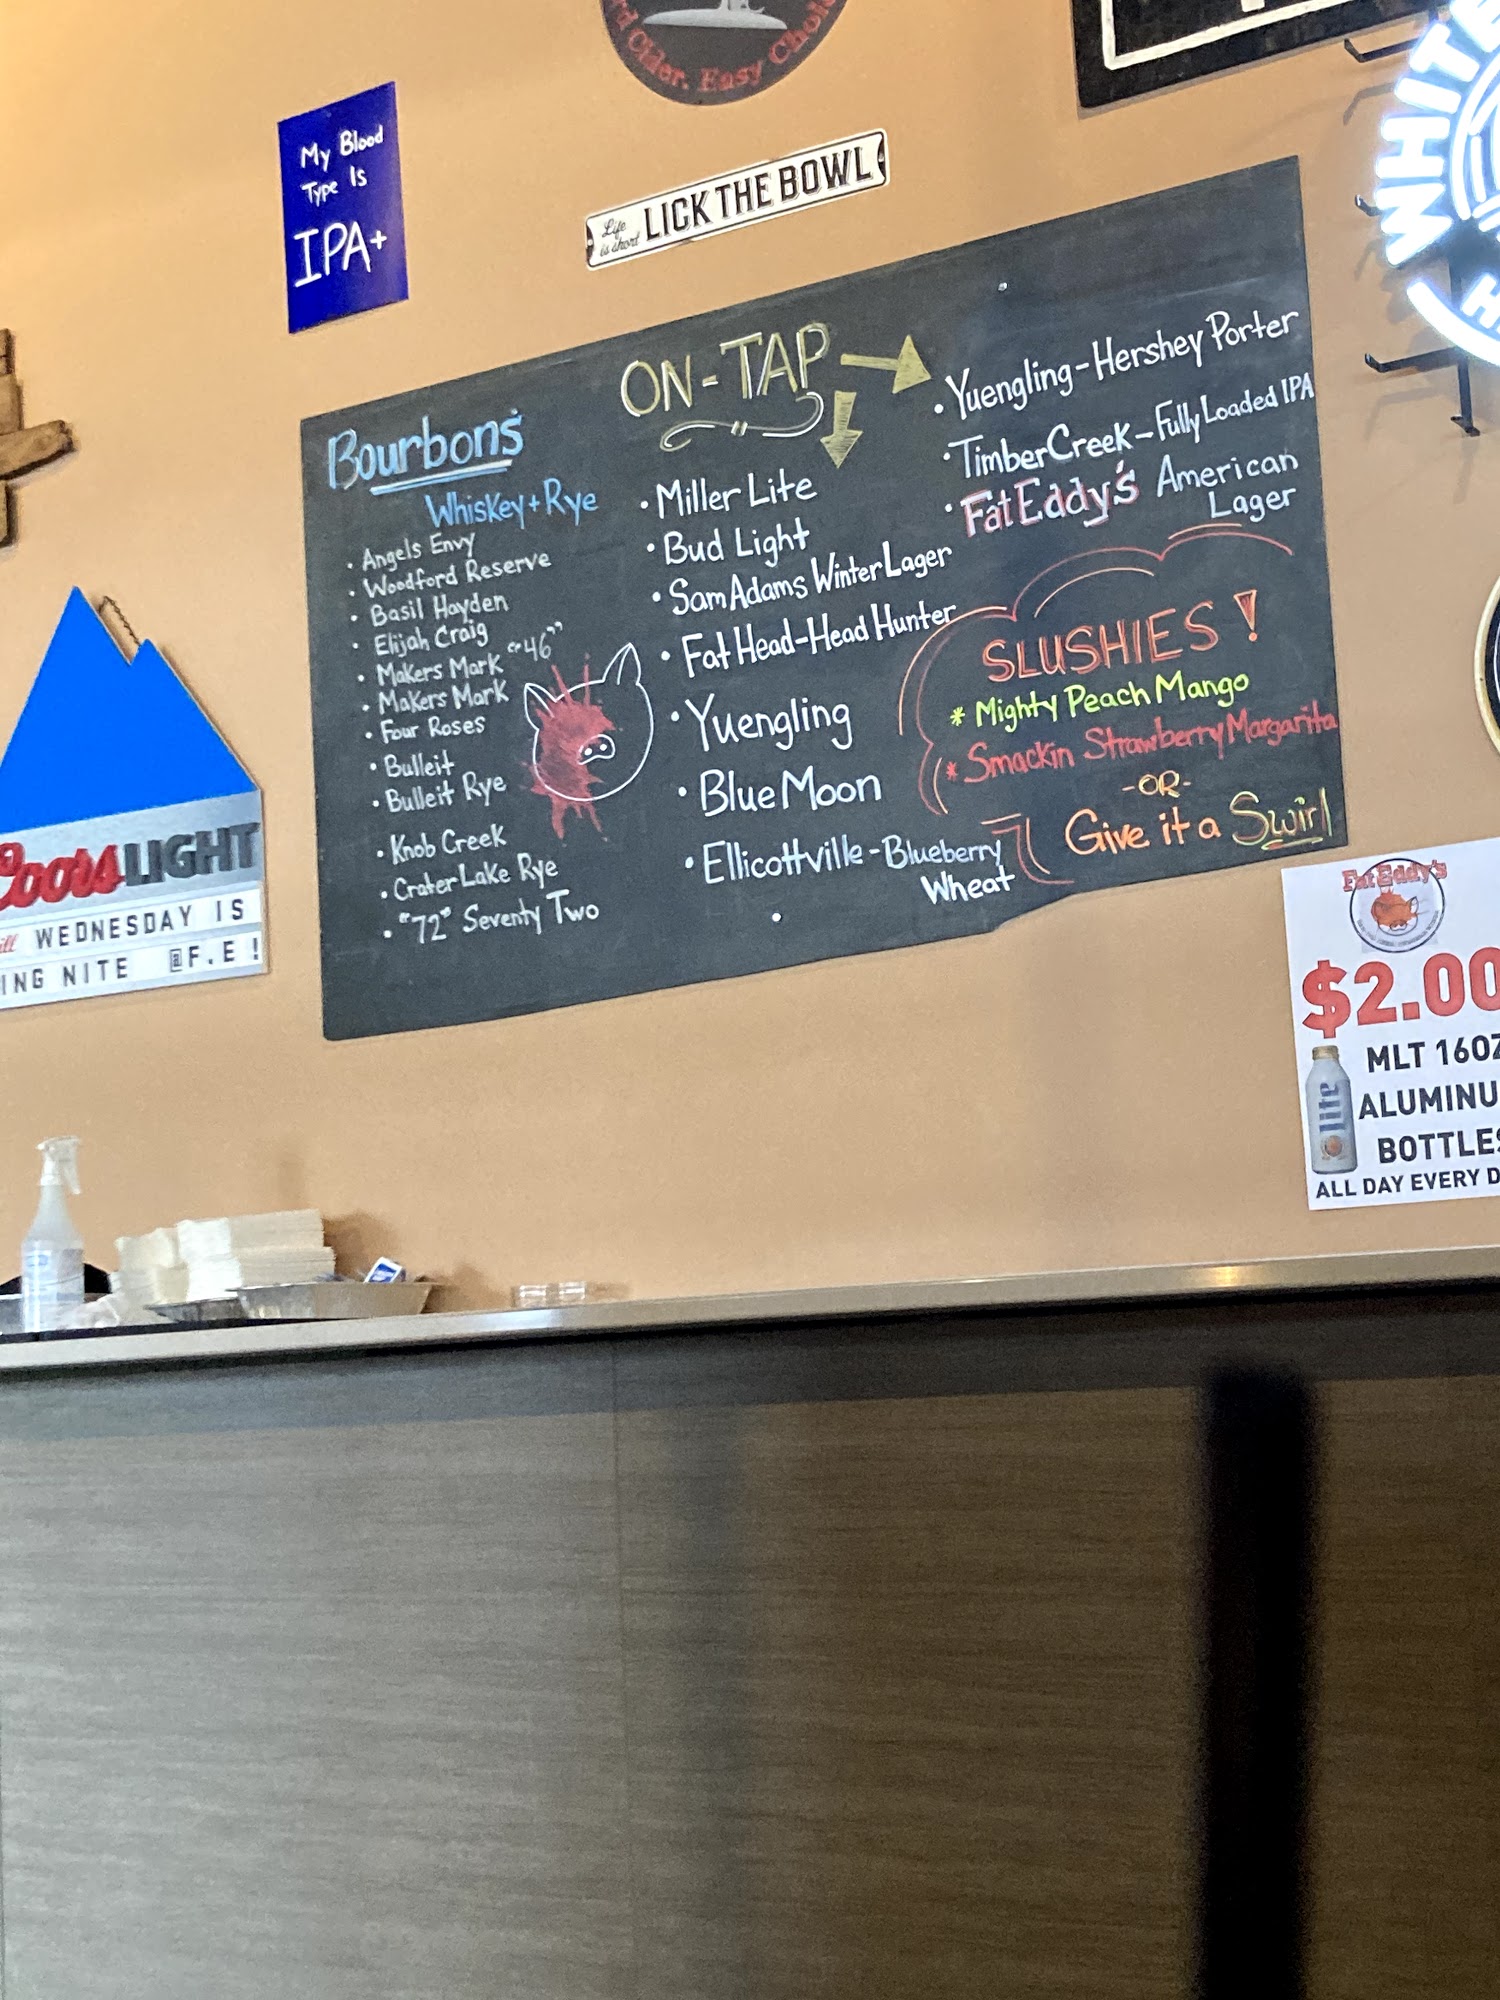 rd Cider. Easy Choi
My Blood
Type Is
IPA+
Life
is short
LICK THE BOWL
WHITE
ON-TAP
Bourbon's
Whiskey + Rye
• Angels Envy
• Woodford Reserve
• Basil Hayden
• Elijah Craig
• Makers Mark "46"
• Makers Mark
• Four Roses
• Bulleit
• Bulleit Rye
• Knob Creek
• Crater Lake Rye
• "72" Seventy Two
• Miller Lite
• Bud Light
• Sam Adams Winter Lager
• Fat Head-Head Hunter
• Yuengling
• Blue Moon
• Ellicottville - Blueberry
Wheat
• Yuengling - Hershey Porter
• Timber Creek - Fully Loaded IPA
• Fat Eddy's American
Lager
SLUSHIES!
* Mighty Peach Mango
* Smackin Strawberry Margarita
-OR-
Give it a Swirl
Coors LIGHT
WEDNESDAY IS
ING NITE @F.E!
Fat Eddy's
$2.00
MLT 16OZ
lite
ALUMINU
BOTTLES
ALL DAY EVERY D